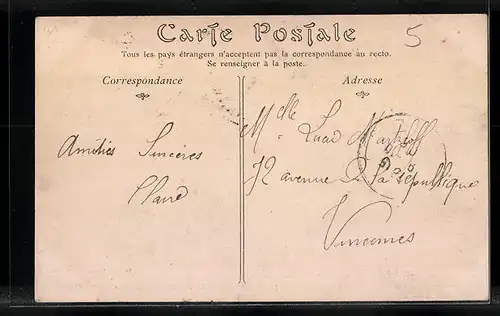 Carte Postale
5
Tous les pays étrangers n'acceptent pas la correspondance au recto.
Se renseigner à la poste.
Correspondance
Adresse
Amitiés Sincères
Claire
Melle
72 avenue de la République
Vincennes